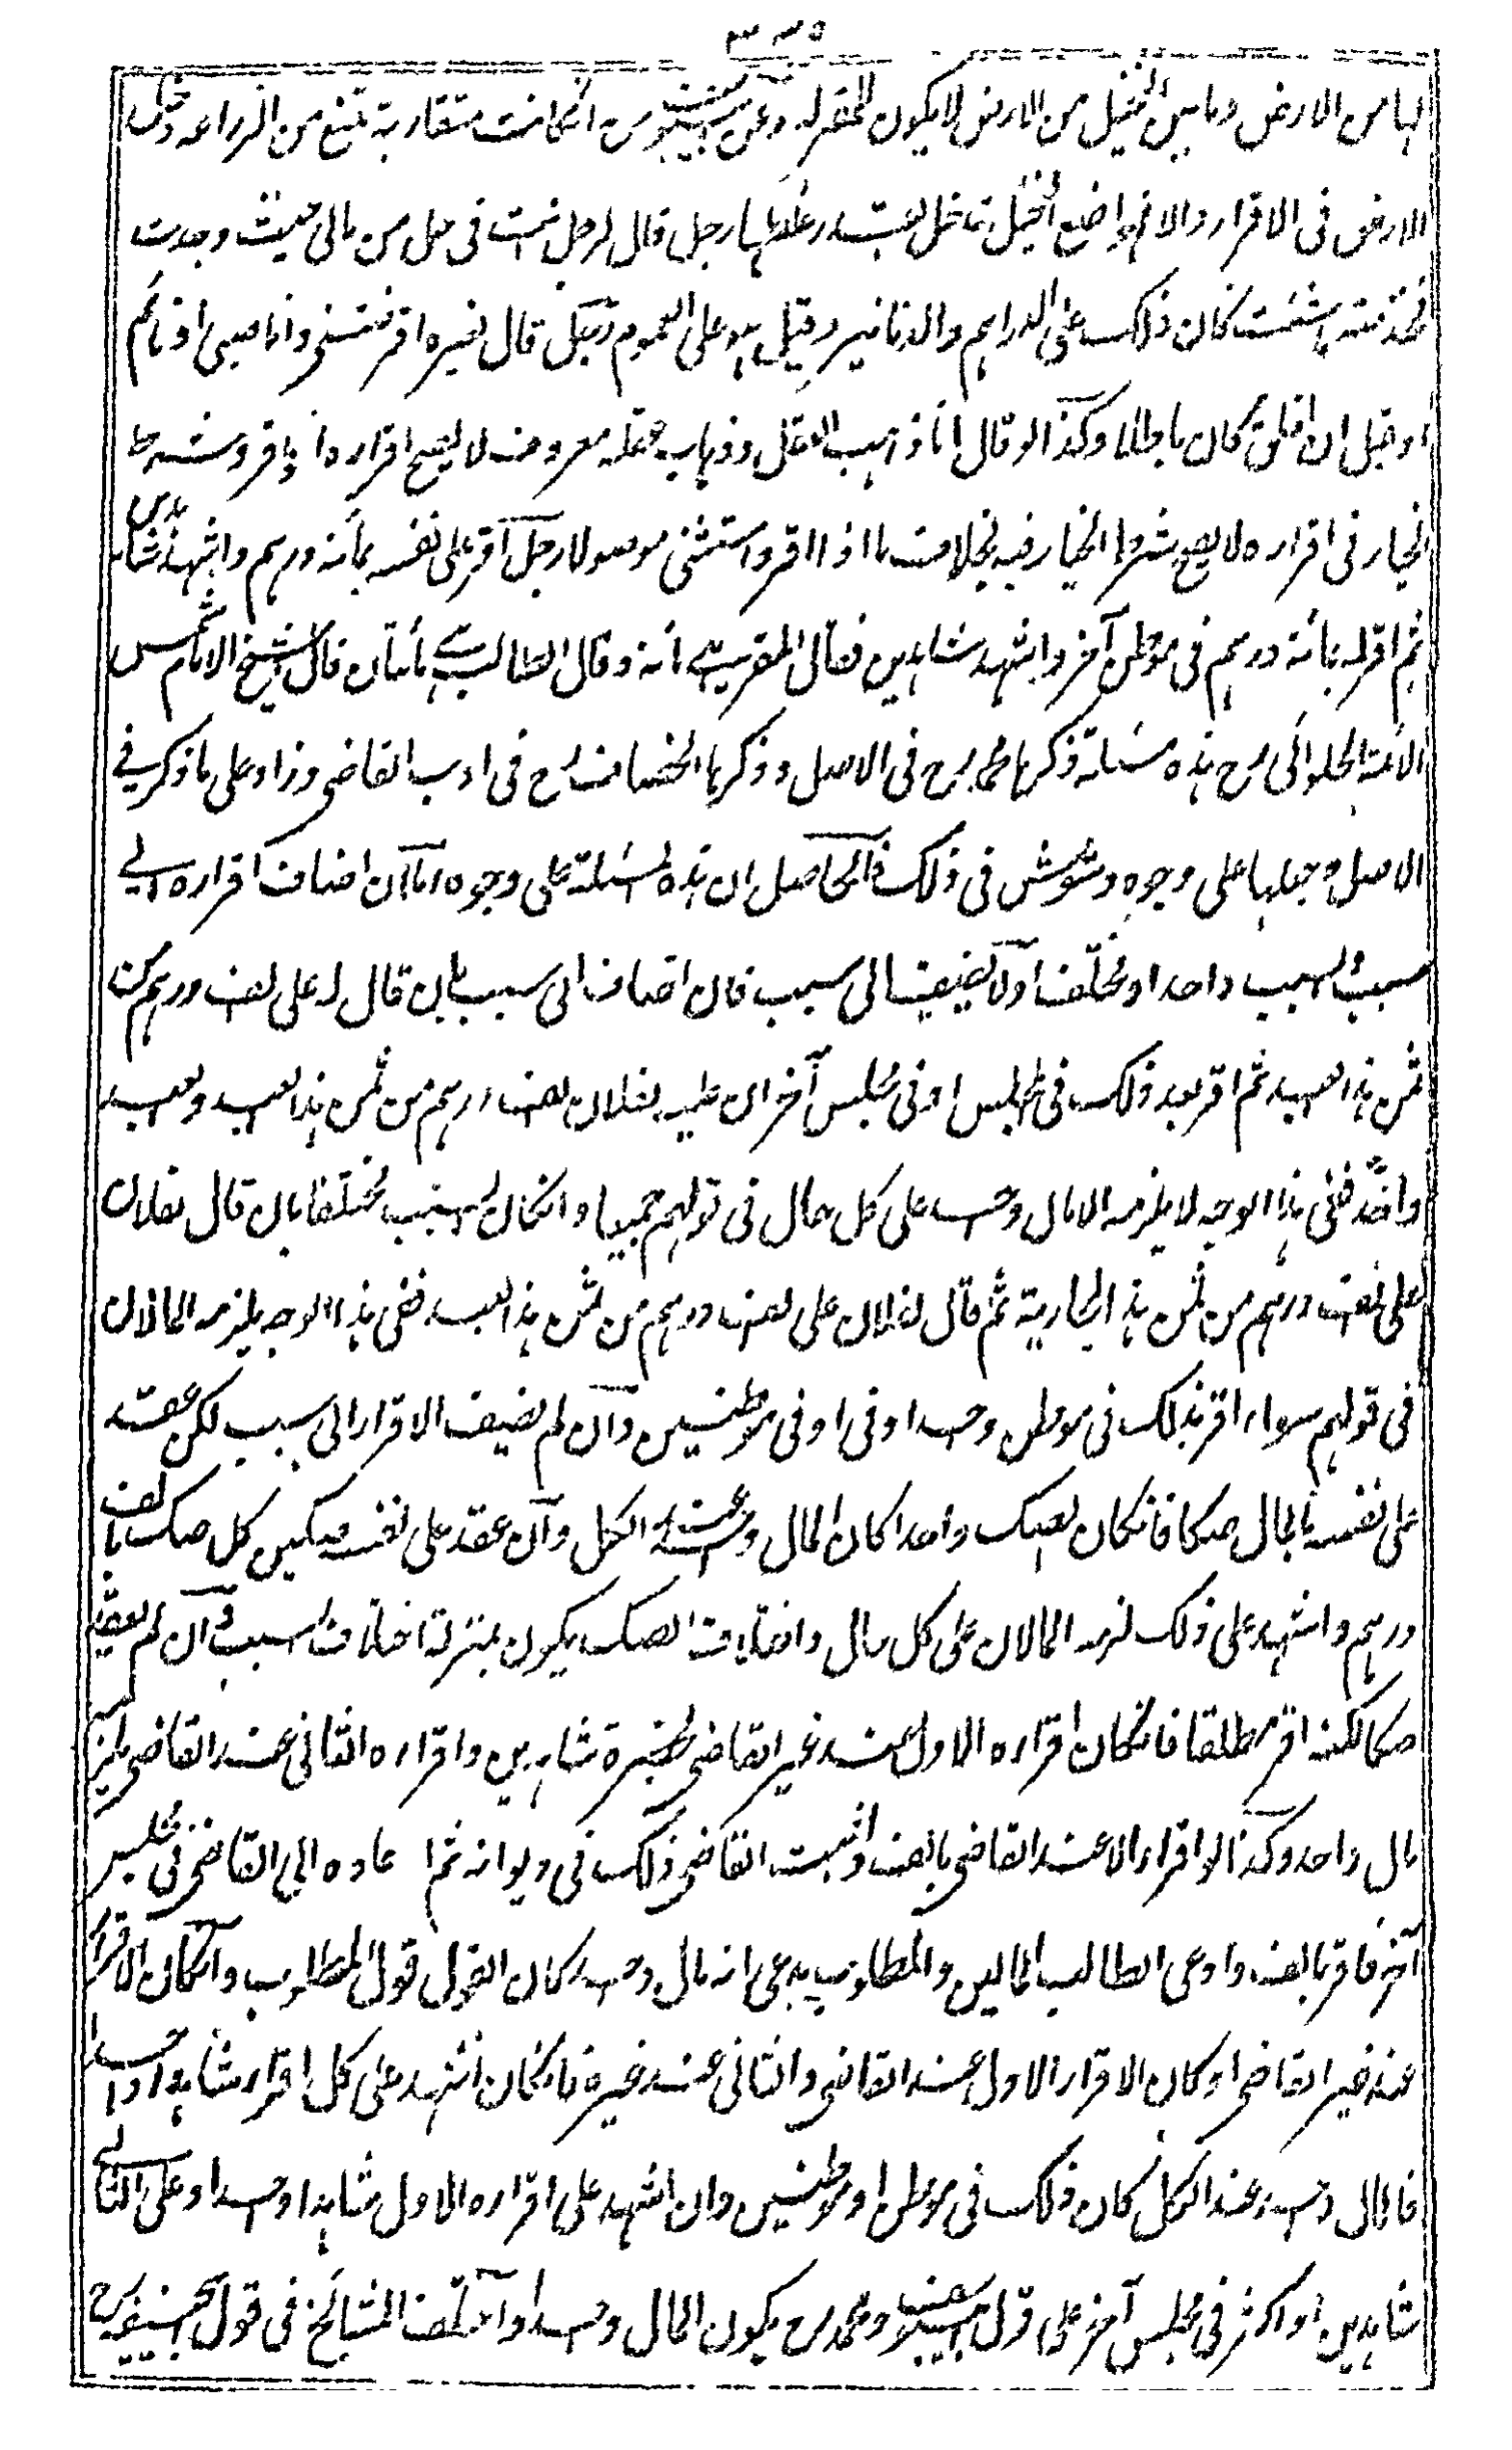 لها من الارض وما بين النخيل من الارض لا يكون للمقر له وعن ابي يوسف رح ان كانت متقاربة تمنع من الزراعة دخل
الارض فى الاقرار والا فمواضع النخيل تدخل بقدر غلظها رجل قال لرجل انت فى حل من مالى حيث وجدت
فخذ منه ما شئت كان ذلك على الدراهم والدنانير وقيل هو على العموم رجل قال لغيره اقرضتنى وانا صبى او نائم
او قبل ان اخلق كان باطلا وكذا لو قال انا ذاهب العقل وذهاب عقله معروف لا يصح اقراره اذا اقر وشرط
الخيار فى اقراره لا يصح شرط الخيار فيه بخلاف ما اذا اقر واستثنى موصولا رجل اقر على نفسه بمائة درهم واشهد شاهدين
ثم اقر له بمائة درهم فى موطن آخر واشهد شاهدين فقال المقر هى مائة وقال الطالب هى مائتان قال الشيخ الامام شمس
الائمة الحلوائى رح هذه مسئلة ذكرها محمد رح فى الاصل وذكرها الخصاف رح فى ادب القاضى وزاد على ما ذكر فى
الاصل وجعلها على وجوه وشوش فى ذلك فالحاصل ان هذه المسئلة على وجوه اما ان اضاف اقراره الى
سبب والسبب واحد او مختلف او لا يضيف الى سبب فان اضاف الى سبب بان قال له على الف درهم من
ثمن هذا العبد ثم اقر بعد ذلك فى المجلس او فى مجلس آخر ان عليه لفلان الف درهم من ثمن هذا العبد والعبد
واحد ففى هذا الوجه لا يلزمه الا مال واحد على كل حال فى قولهم جميعا وان كان السبب مختلفا بان قال لفلان
على الف درهم من ثمن هذه الجارية ثم قال لفلان على الف درهم من ثمن هذا العبد ففى هذا الوجه يلزمه المالان
فى قولهم سواء اقر بذلك فى موطن واحد او فى موطنين وان لم يضيف الاقرار الى سبب لكن عقد
على نفسه بالمال صكا فان كان الصك واحدا كان المال واحدا عند الكل وان عقد على نفسه صكين كل صك بالف
درهم واشهد على ذلك لزمه المالان على كل حال واختلاف الصك يكون بمنزلة اختلاف السبب وان لم يعقد
صكا لكنه اقر مطلقا فان كان اقراره الاول عند غير القاضى بحضرة شاهدين واقراره الثانى عند القاضى يلزمه
مال واحد وكذا لو اقر اولا عند القاضى بالف واثبت القاضى ذلك فى ديوانه ثم اعاده الى القاضى فى مجلس
آخر فاقر بالف وادعى الطالب المالين والمطلوب يدعى انه مال واحد كان القول قول المطلوب وان كان الاقرار
عند غير القاضى او كان الاقرار الاول عند القاضى والثانى عند غيره فان كان اشهد على كل اقرار شاهدا واحدا
فالمال واحد عند الكل كان ذلك فى موطن او موطنين وان اشهد على اقراره الاول شاهدا واحدا وعلى الثانى
شاهدين او اكثر فى مجلس آخر على قول ابي يوسف ومحمد رح يكون المال واحدا واختلف المشائخ فى قول ابي حنيفة رح